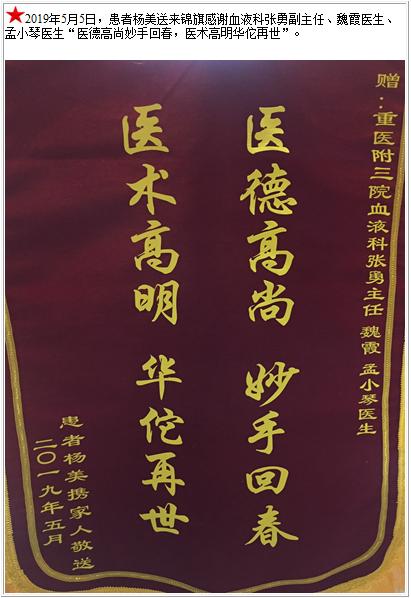 ★2019年5月5日，患者杨美送来锦旗感谢血液科张勇副主任、魏霞医生、
孟小琴医生“医德高尚妙手回春，医术高明华佗再世”。
赠：重医附三院血液科张勇主任 魏霞 孟小琴医生
医德高尚 妙手回春
医术高明 华佗再世
患者杨美携家人敬送
二〇一九年五月